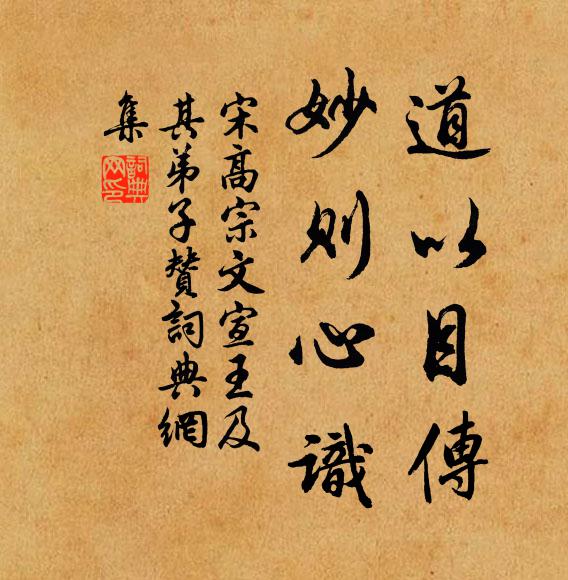 道以目傳
妙則心識
宋高宗文宣王及
其弟子贊詞典網
集
詞典網印